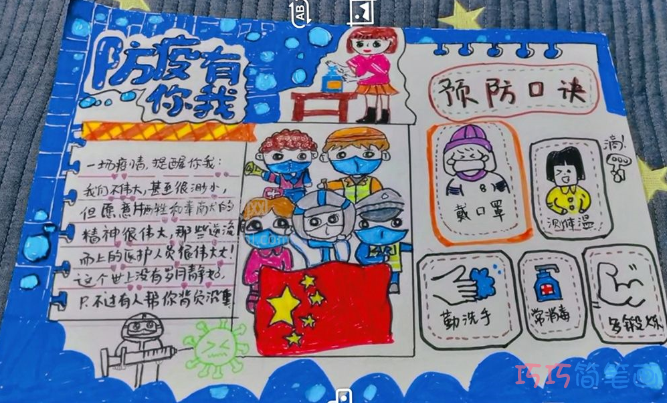 防疫有
你我
一场疫情,提醒你我:
我们不伟大,甚至很渺小,
但愿意牺牲和奉献的
精神很伟大,那些逆流
而上的医护人员很伟大!
这个世上没有岁月静好,
只不过有人替你负重
预防口诀
戴口罩
滴!
测体温
勤洗手
常消毒
多锻炼
巧巧简笔画